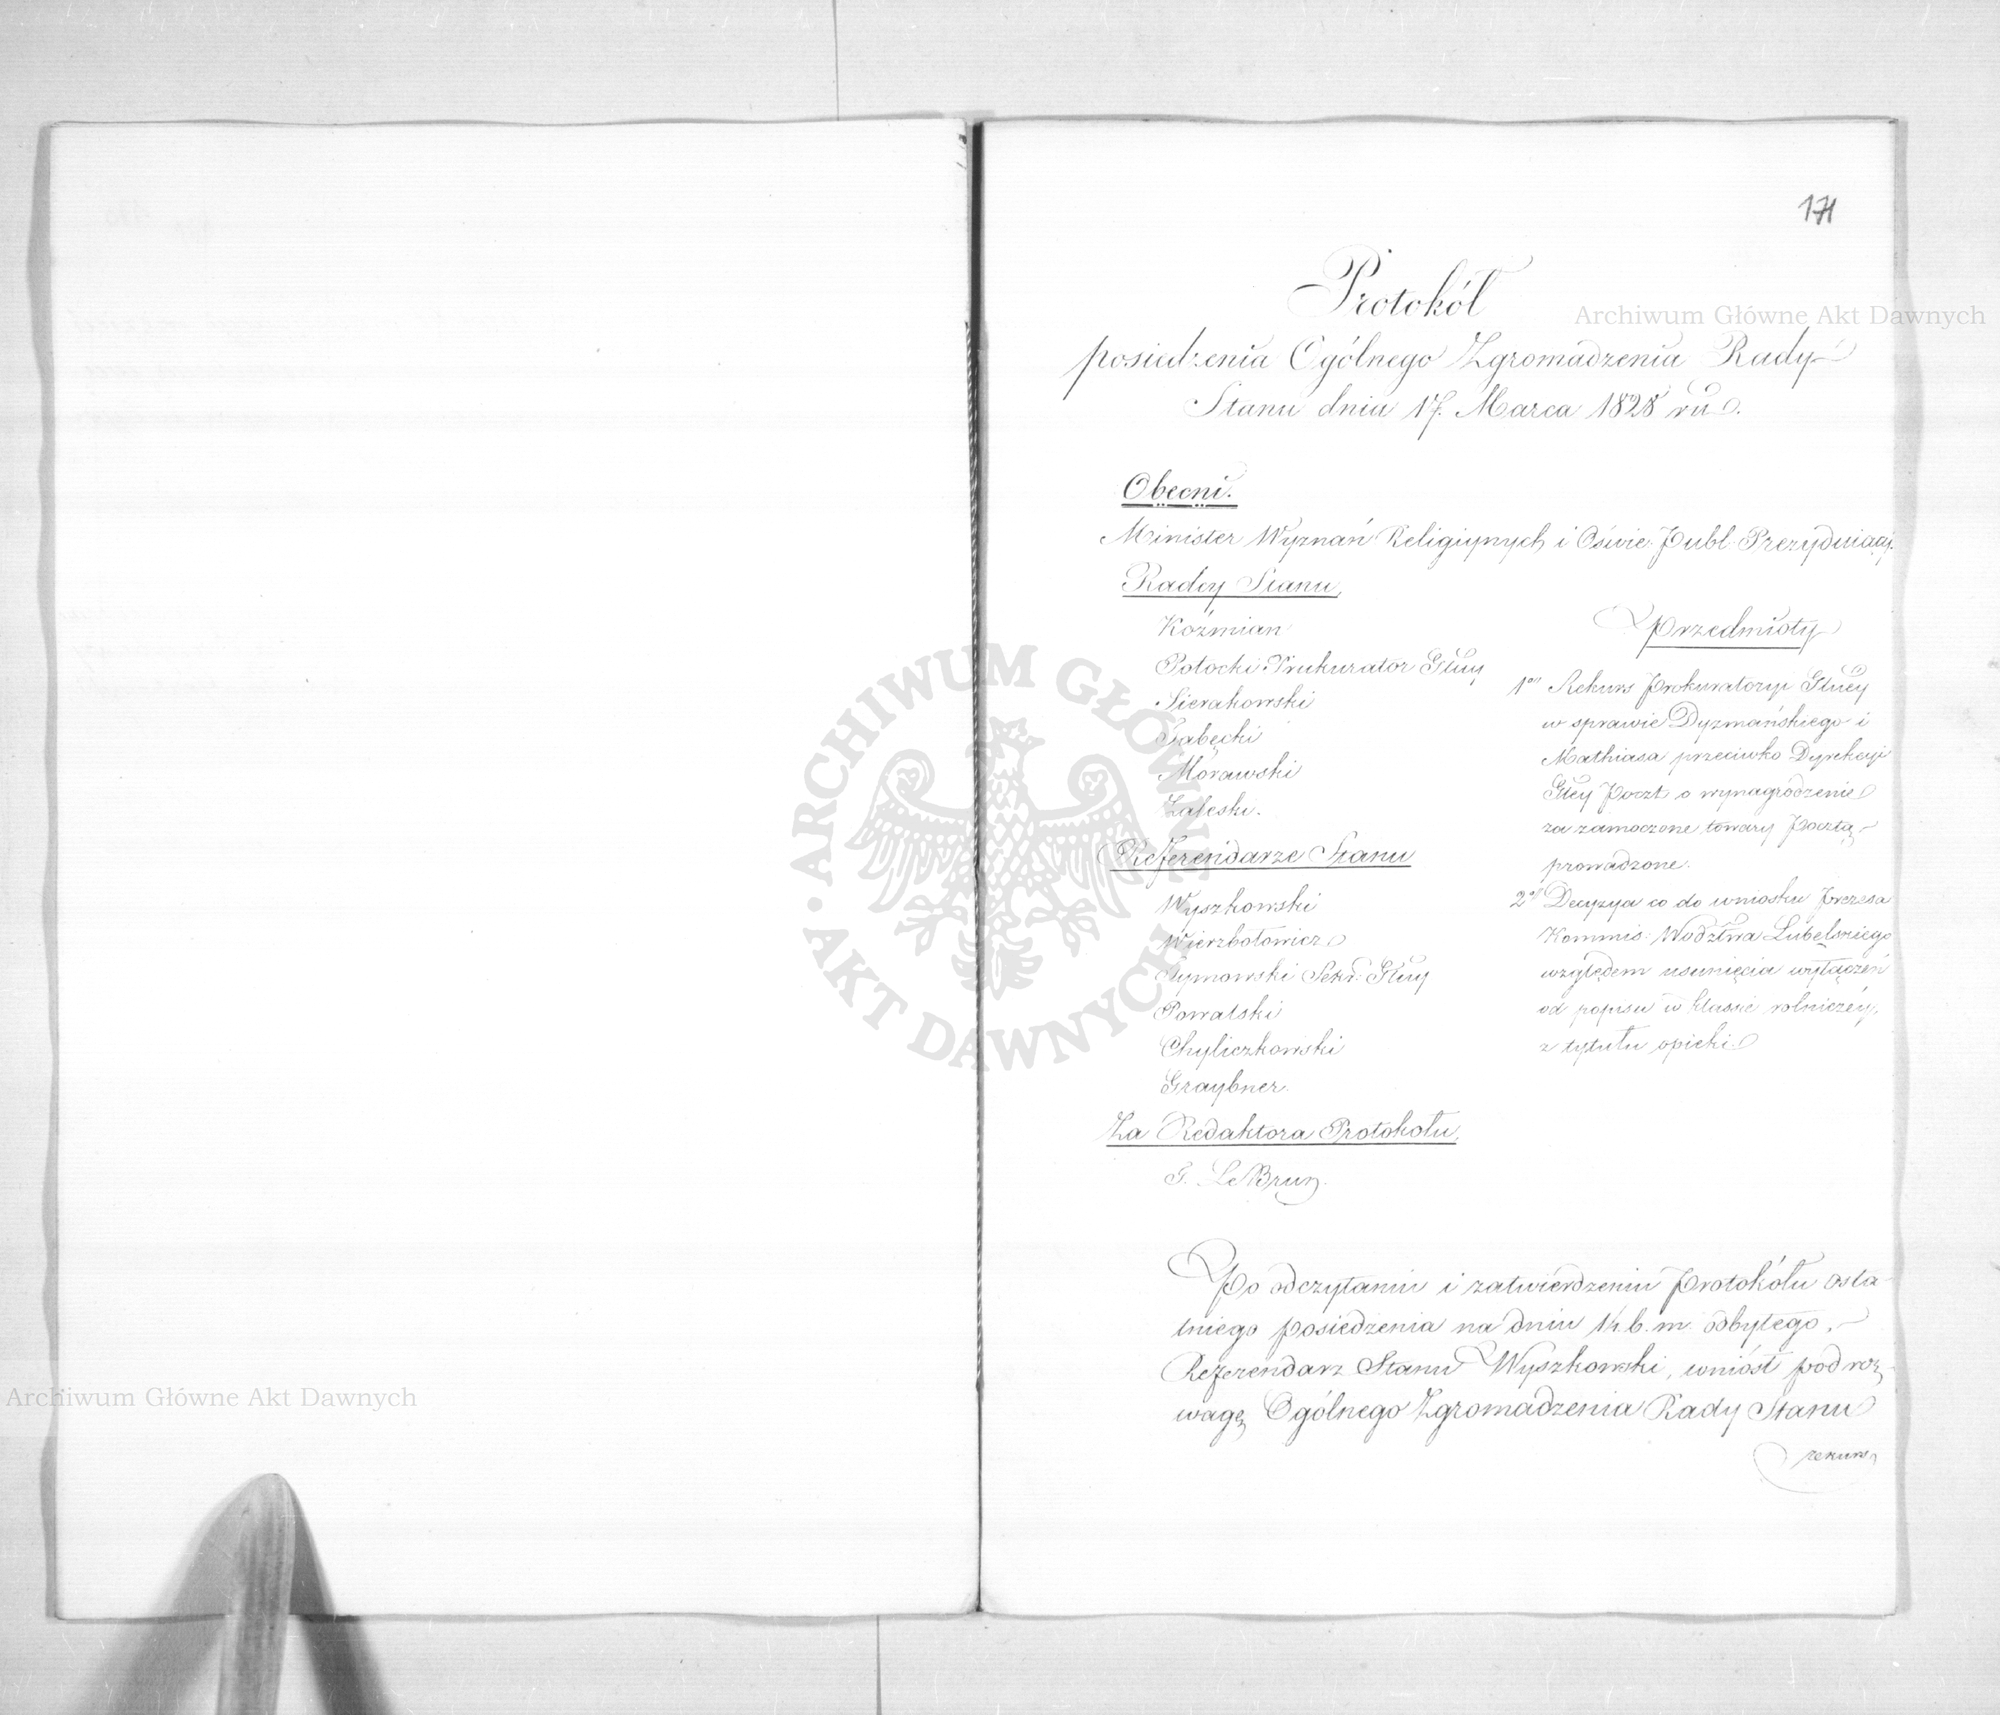 171
Protokół
posiedzenia Ogólnego Zgromadzenia Rady
Stanu dnia 17. Marca 1828 ru.
Obecni.
Minister Wyznań Religiynych i Oświe. Publ. Prezyduiący.
Radcy Stanu,
Koźmian
Potocki Prokurator Głłny
Sierakowski
Tabęcki
Morawski
Zaleski.
Referendarze Stanu
Wyszkowski
Wierzbołowicz
Tymowski Sekr: Głłny
Powalski
Chyliczkowski
Graybner.
Za Redaktora Protokołu,
G. Le Brun.
Przedmioty
1o Rekurs Prokuratoryi
w sprawie Dyzmańskiego i
Mathiasa przeciwko Dyrekcyi
Głłey Poczt o wynagrodzenie
za zamoczone towary Pocztą
prowadzone.
2o Decyzya co do wniosku Prezesa
Kommis. Wodztwa Lubelskiego
względem usunięcia wyłączeń
od popisu w klassie rolniczéy,
z tytułu opieki.
Po odczytaniu i zatwierdzeniu Protokółu osta-
tniego posiedzenia na dniu 14. b. m. odbytego,
Referendarz Stanu Wyszkowski, wniósł pod roz-
wagę Ogólnego Zgromadzenia Rady Stanu
rekurs
Archiwum Główne Akt Dawnych
Archiwum Główne Akt Dawnych
ARCHIWUM GŁÓWNE AKT DAWNYCH